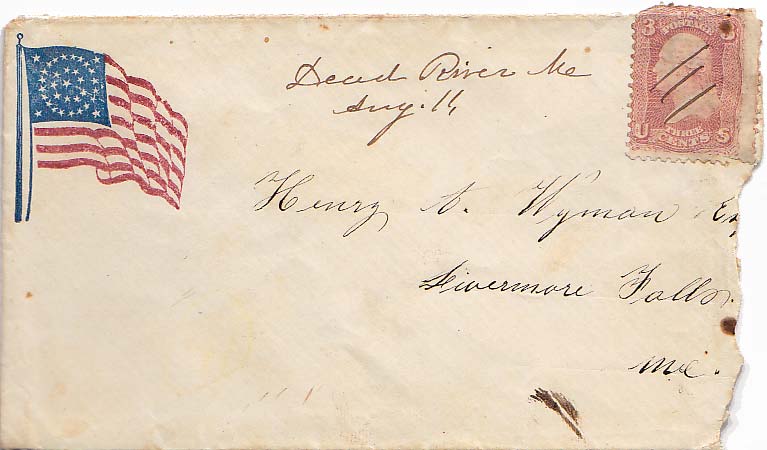 Dead River Me
Aug. 11
3 U.S. POSTAGE 3
U THREE CENTS S
Henry A. Wyman Es
Livermore Falls.
Me.